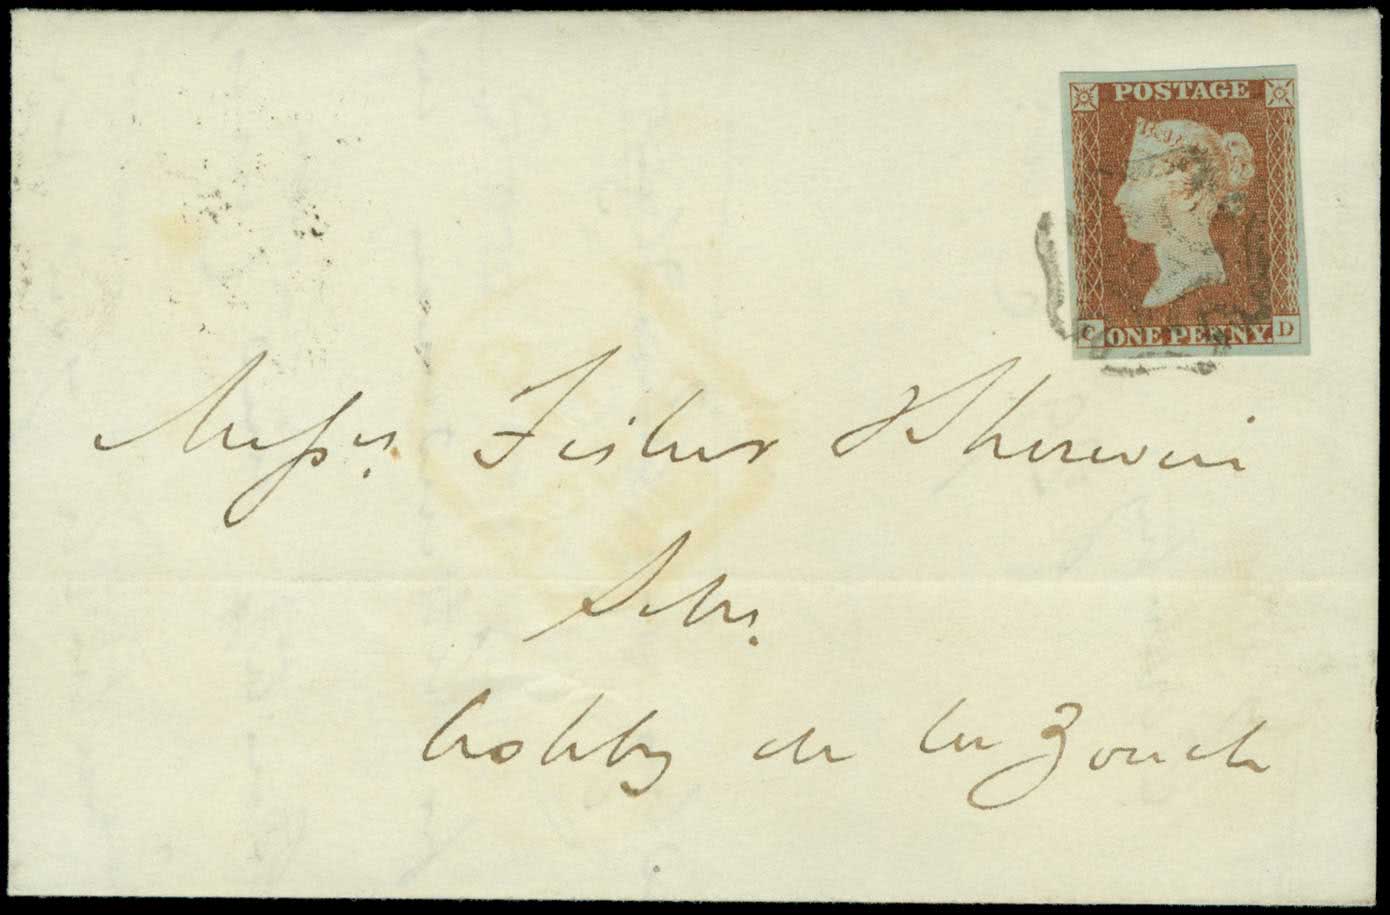 POSTAGE
C ONE PENNY. D
Messrs. Fisher & Sherwin
Solrs.
Ashby de la Zouch